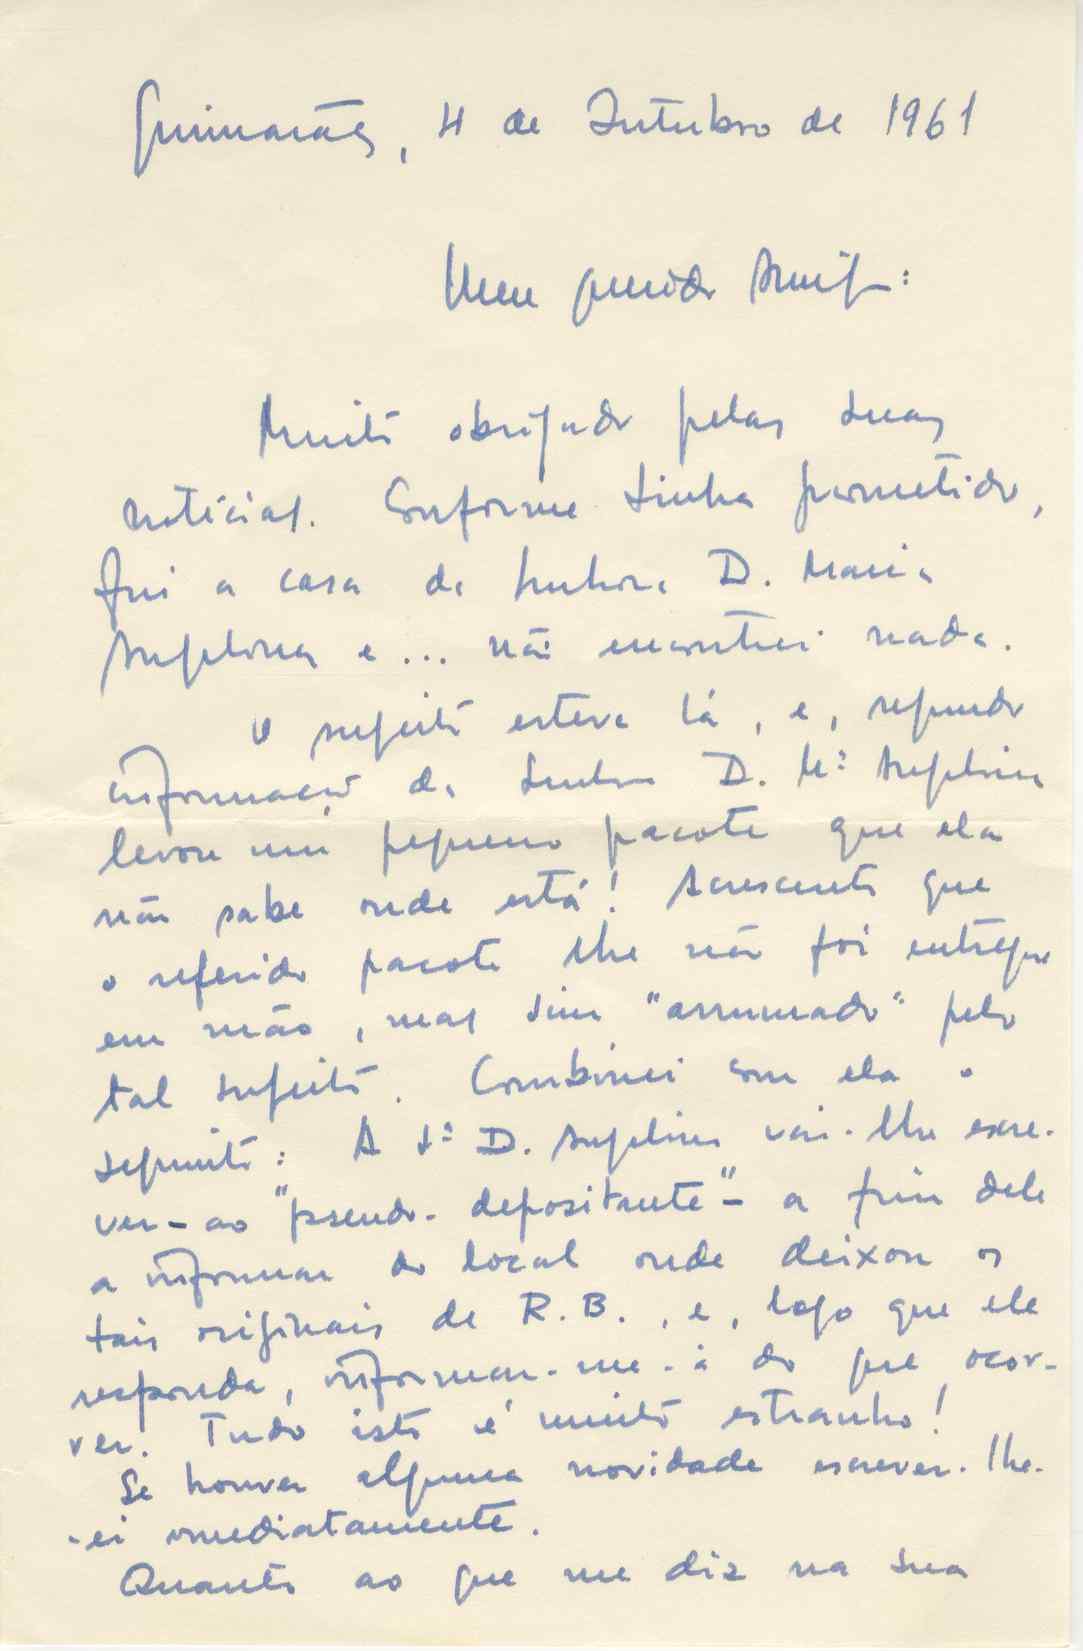 Guimarães, 4 de Outubro de 1961
Meu querido Amigo:
Muito obrigado pelas suas
notícias. Conforme tinha prometido,
fui a casa da Senhora D. Maria
Angelina e... não encontrei nada.
O sujeito esteve lá, e, segundo
informação da Senhora D. Mª Angelina
levou um pequeno pacote que ela
não sabe onde está! Acrescento que
o referido pacote lhe não foi entregue
em mão, mas sim "arrumado" pelo
tal sujeito. Combinei com ela o
seguinte: A Sª D. Angelina vai-lhe escre-
ver - ao "pseudo-depositante" - a fim dele
a informar do local onde deixou os
tais originais de R.B., e, logo que ele
responda, informar-me-á do que ocor-
rer. Tudo isto é muito estranho!
Se houver alguma novidade escrever-lhe-
-ei imediatamente.
Quanto ao que me diz na sua